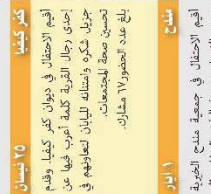 كفر كيفيا
٢٥ نيسان
أقيم الاحتفال في ديوان كفر كيفيا وقدم
إحدى رجال القرية كلمة أعرب فيها عن
جزيل شكره وامتنانه لليابان لتعاونهم في
تحسين صحة المجتمعات.
بلغ عدد الحضور ١٧ مشارك.
مندح
١ أيار
أقيم الاحتفال في جمعية مندح الخيرية